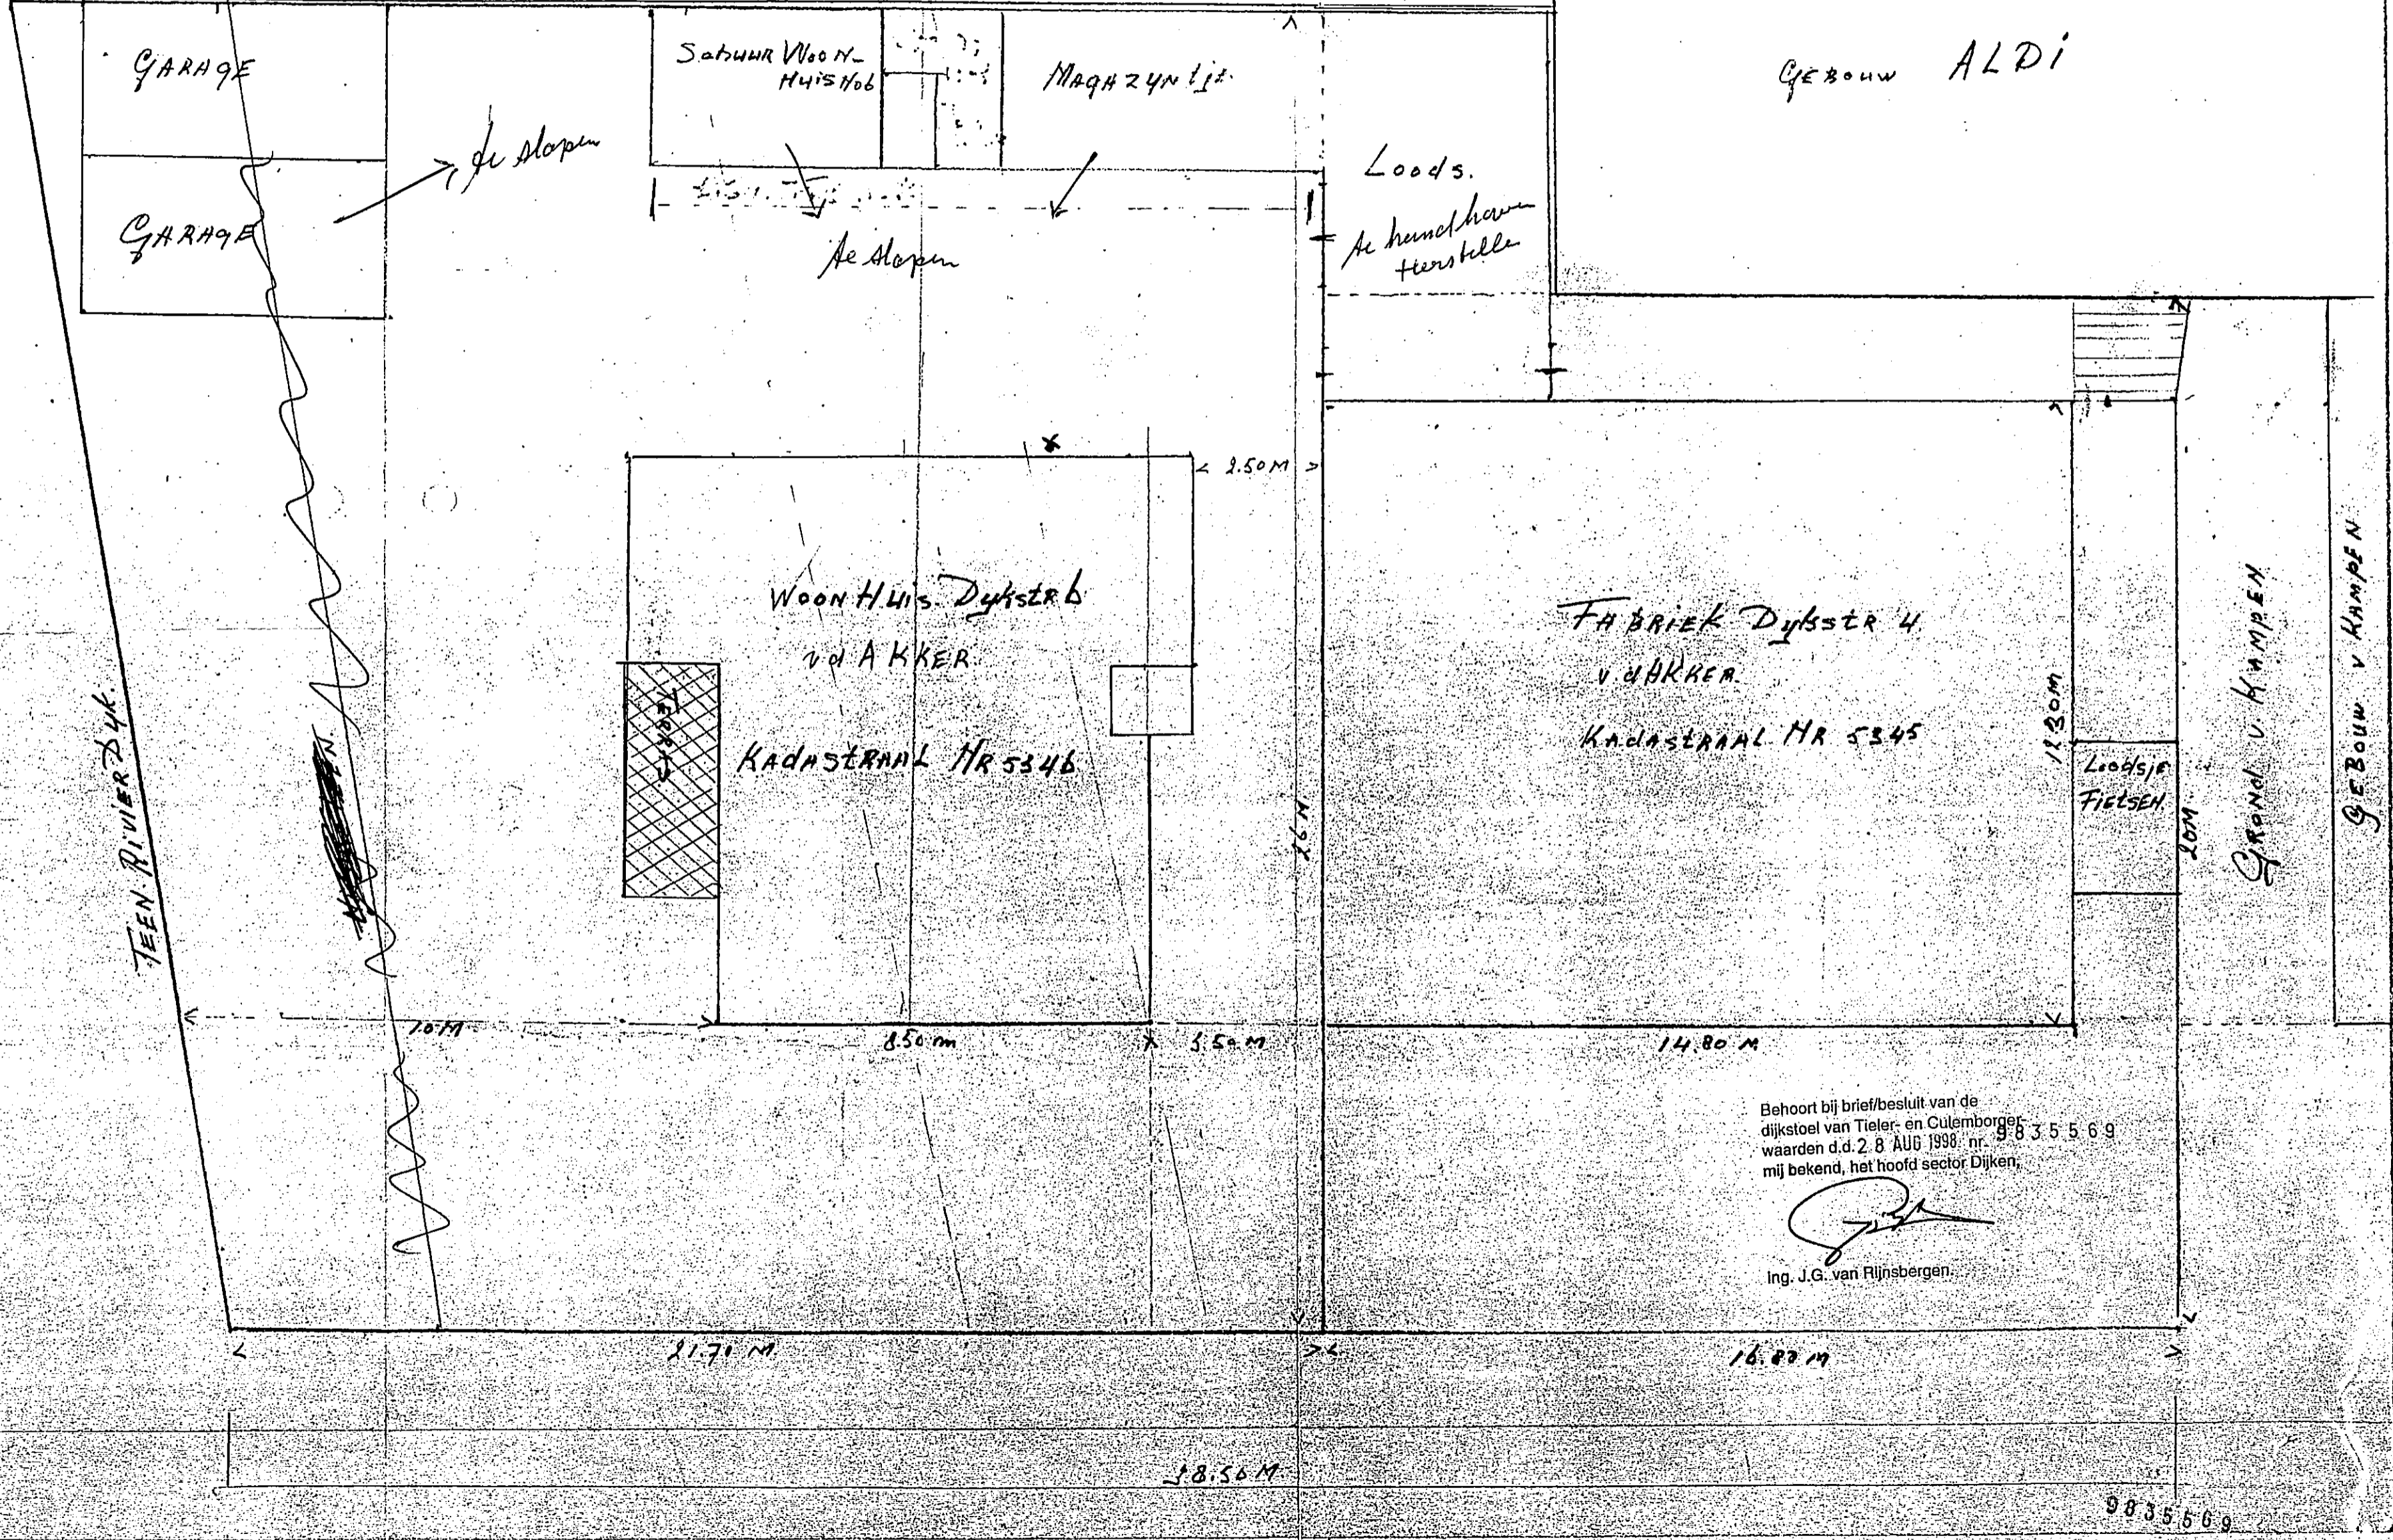 GARAGE
GARAGE
te slopen
Schuur Woon-
Huis No6
MAGAZYNtje
te slopen
Loods.
te handhaven
Herstellen
GEBOUW ALDI
2.50 M
WOONHuis Dykstr 6
vd AKKER
KADASTRAAL NR 5346
TERRAS
FABRIEK Dykstr 4
v.d AKKER
KADASTRAAL NR 5345
12.30 M
Loodsje
FIETSEN
20 M
GROND v. KAMPEN
GEBOUW v KAMPEN
TEEN RIVIER Dyk.
26 M
10 M
8.50 m
3.50 M
14.80 M
Behoort bij brief/besluit van de
dijkstoel van Tieler- en Culemborger-
waarden d.d. 28 AUG 1998 nr. 9835569
mij bekend, het hoofd sector Dijken,
Ing. J.G. van Rijnsbergen.
21.70 M
16.80 m
38.50 M
9835569